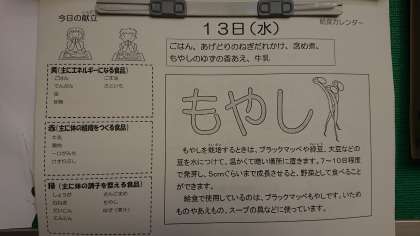 今日の献立
給食カレンダー
13日(水)
ごはん、あげどりのねぎだれかけ、含め煮、
もやしのゆずの香あえ、牛乳
黄(主にエネルギーになる食品)
ごはん
でんぷん
油
砂糖
ごま油
さといも
赤(主に体の組織をつくる食品)
牛乳
鶏肉
もやし
もやしを栽培するときは、ブラックマッペや緑豆、大豆などの
豆を水につけて、温かくて暗い場所に置きます。7～10日程度
で発芽し、5cmぐらいまで成長させると、野菜として食べること
ができます。
給食で使用しているのは、ブラックマッペもやしです。いため
ものやあえもの、スープの具などに使っています。
緑(主に体の調子を整える食品)
しょうが
ねぎ
だいこん
にんじん
もやし
ゆず(果汁)